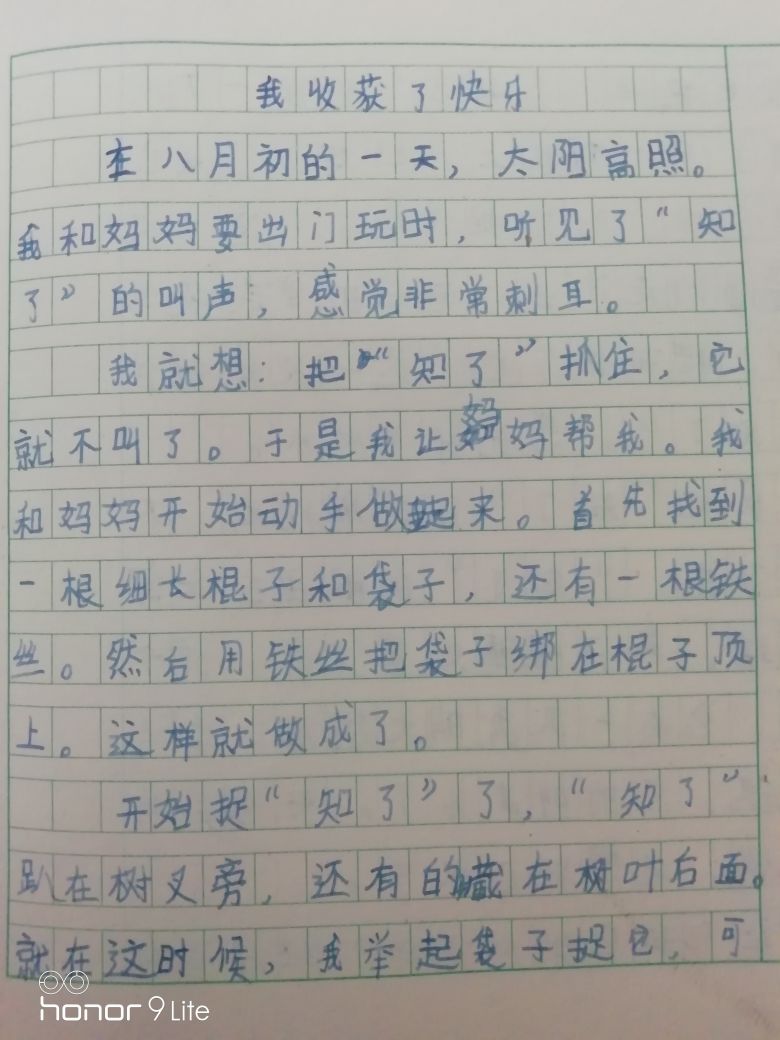 我收获了快乐
在八月初的一天，太阳高照。
我和妈妈要出门玩时，听见了“知
了”的叫声，感觉非常刺耳。
我就想：把“知了”抓住，它
就不叫了。于是我让妈妈帮我。我
和妈妈开始动手做起来。首先找到
一根细长棍子和袋子，还有一根铁
丝。然后用铁丝把袋子绑在棍子顶
上。这样就做成了。
开始捉“知了”了，“知了”
趴在树叉旁，还有的藏在树叶后面。
就在这时候，我举起袋子捉它，可
honor 9 Lite